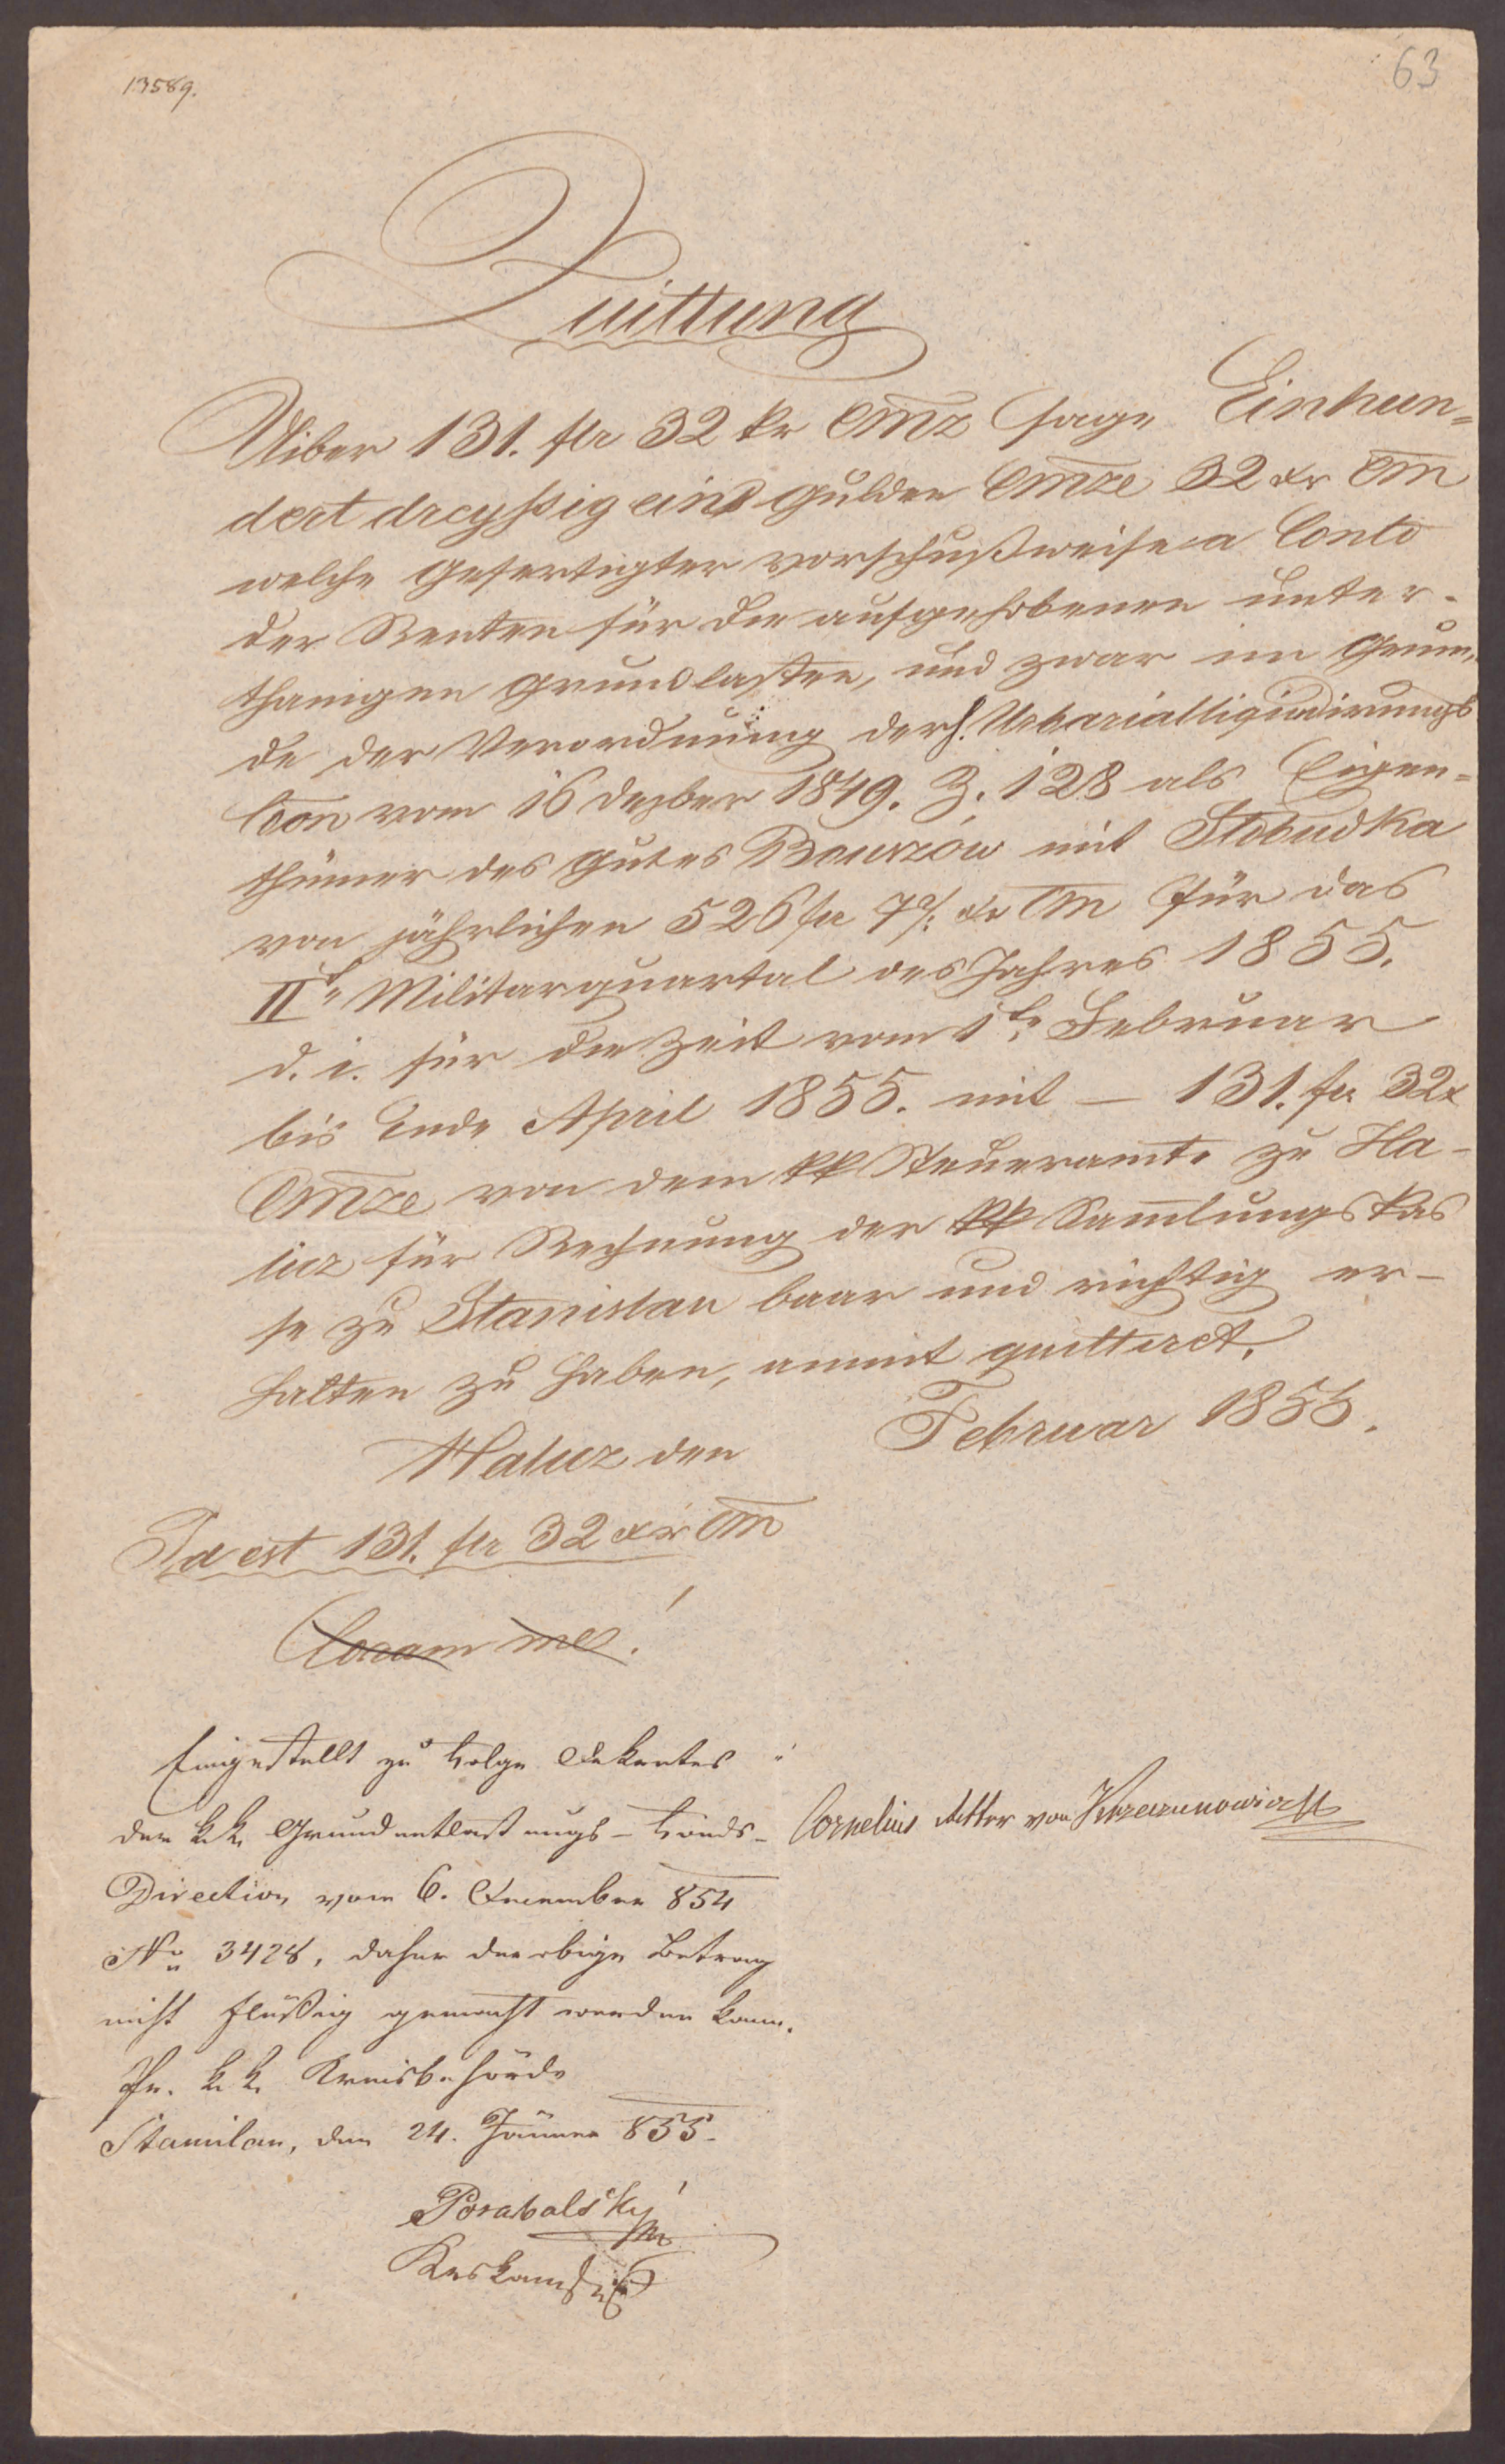 13589.
63
Quittung
Uiber 131. flr 32 kr CMz sage Einhun=
dert dreyßig eins Gulden CMze 32 xr CM
welche Gefertigter vorschußweise a Conto
der Renten für die aufgehobenen unter-
thanigen Grundlasten, und zwar im Grun=
de der Verordnung der h. Urbarialliquidirungs
Con vom 16 Dezber 1849. Z. 128 als Eigen=
thümer des Gutes Bouszów mit Slobudka
von jährlichen 526 fr 7 xr CM für das
II Militarquartal des Jahres 1855.
d. i. für die Zeit vom 1 Februar
bis Ende April 1855. mit — 131. fr 32 x
CMze von dem kk Steueramte zu Ha-
licz für Rechnung der kk Sam̅lungskas
se zu Stanislau baar und richtig er-
halten zu haben, anmit quittirt.
Halicz den Februar 1855.
Id est 131. flr 32 xr CM
Coram me!
Eingestellt zu Folge Dekretes
der k. k. Grundentlastungs-Fonds-
Direction vom 6. December 854
No 3428, daher der obige Betrag
nicht flüßig gemacht werden kann.
k. k. Kreisbehörde
Stanislau, den 24. Jänner 855.
Cornelius Ritter von Krzeczunowicz